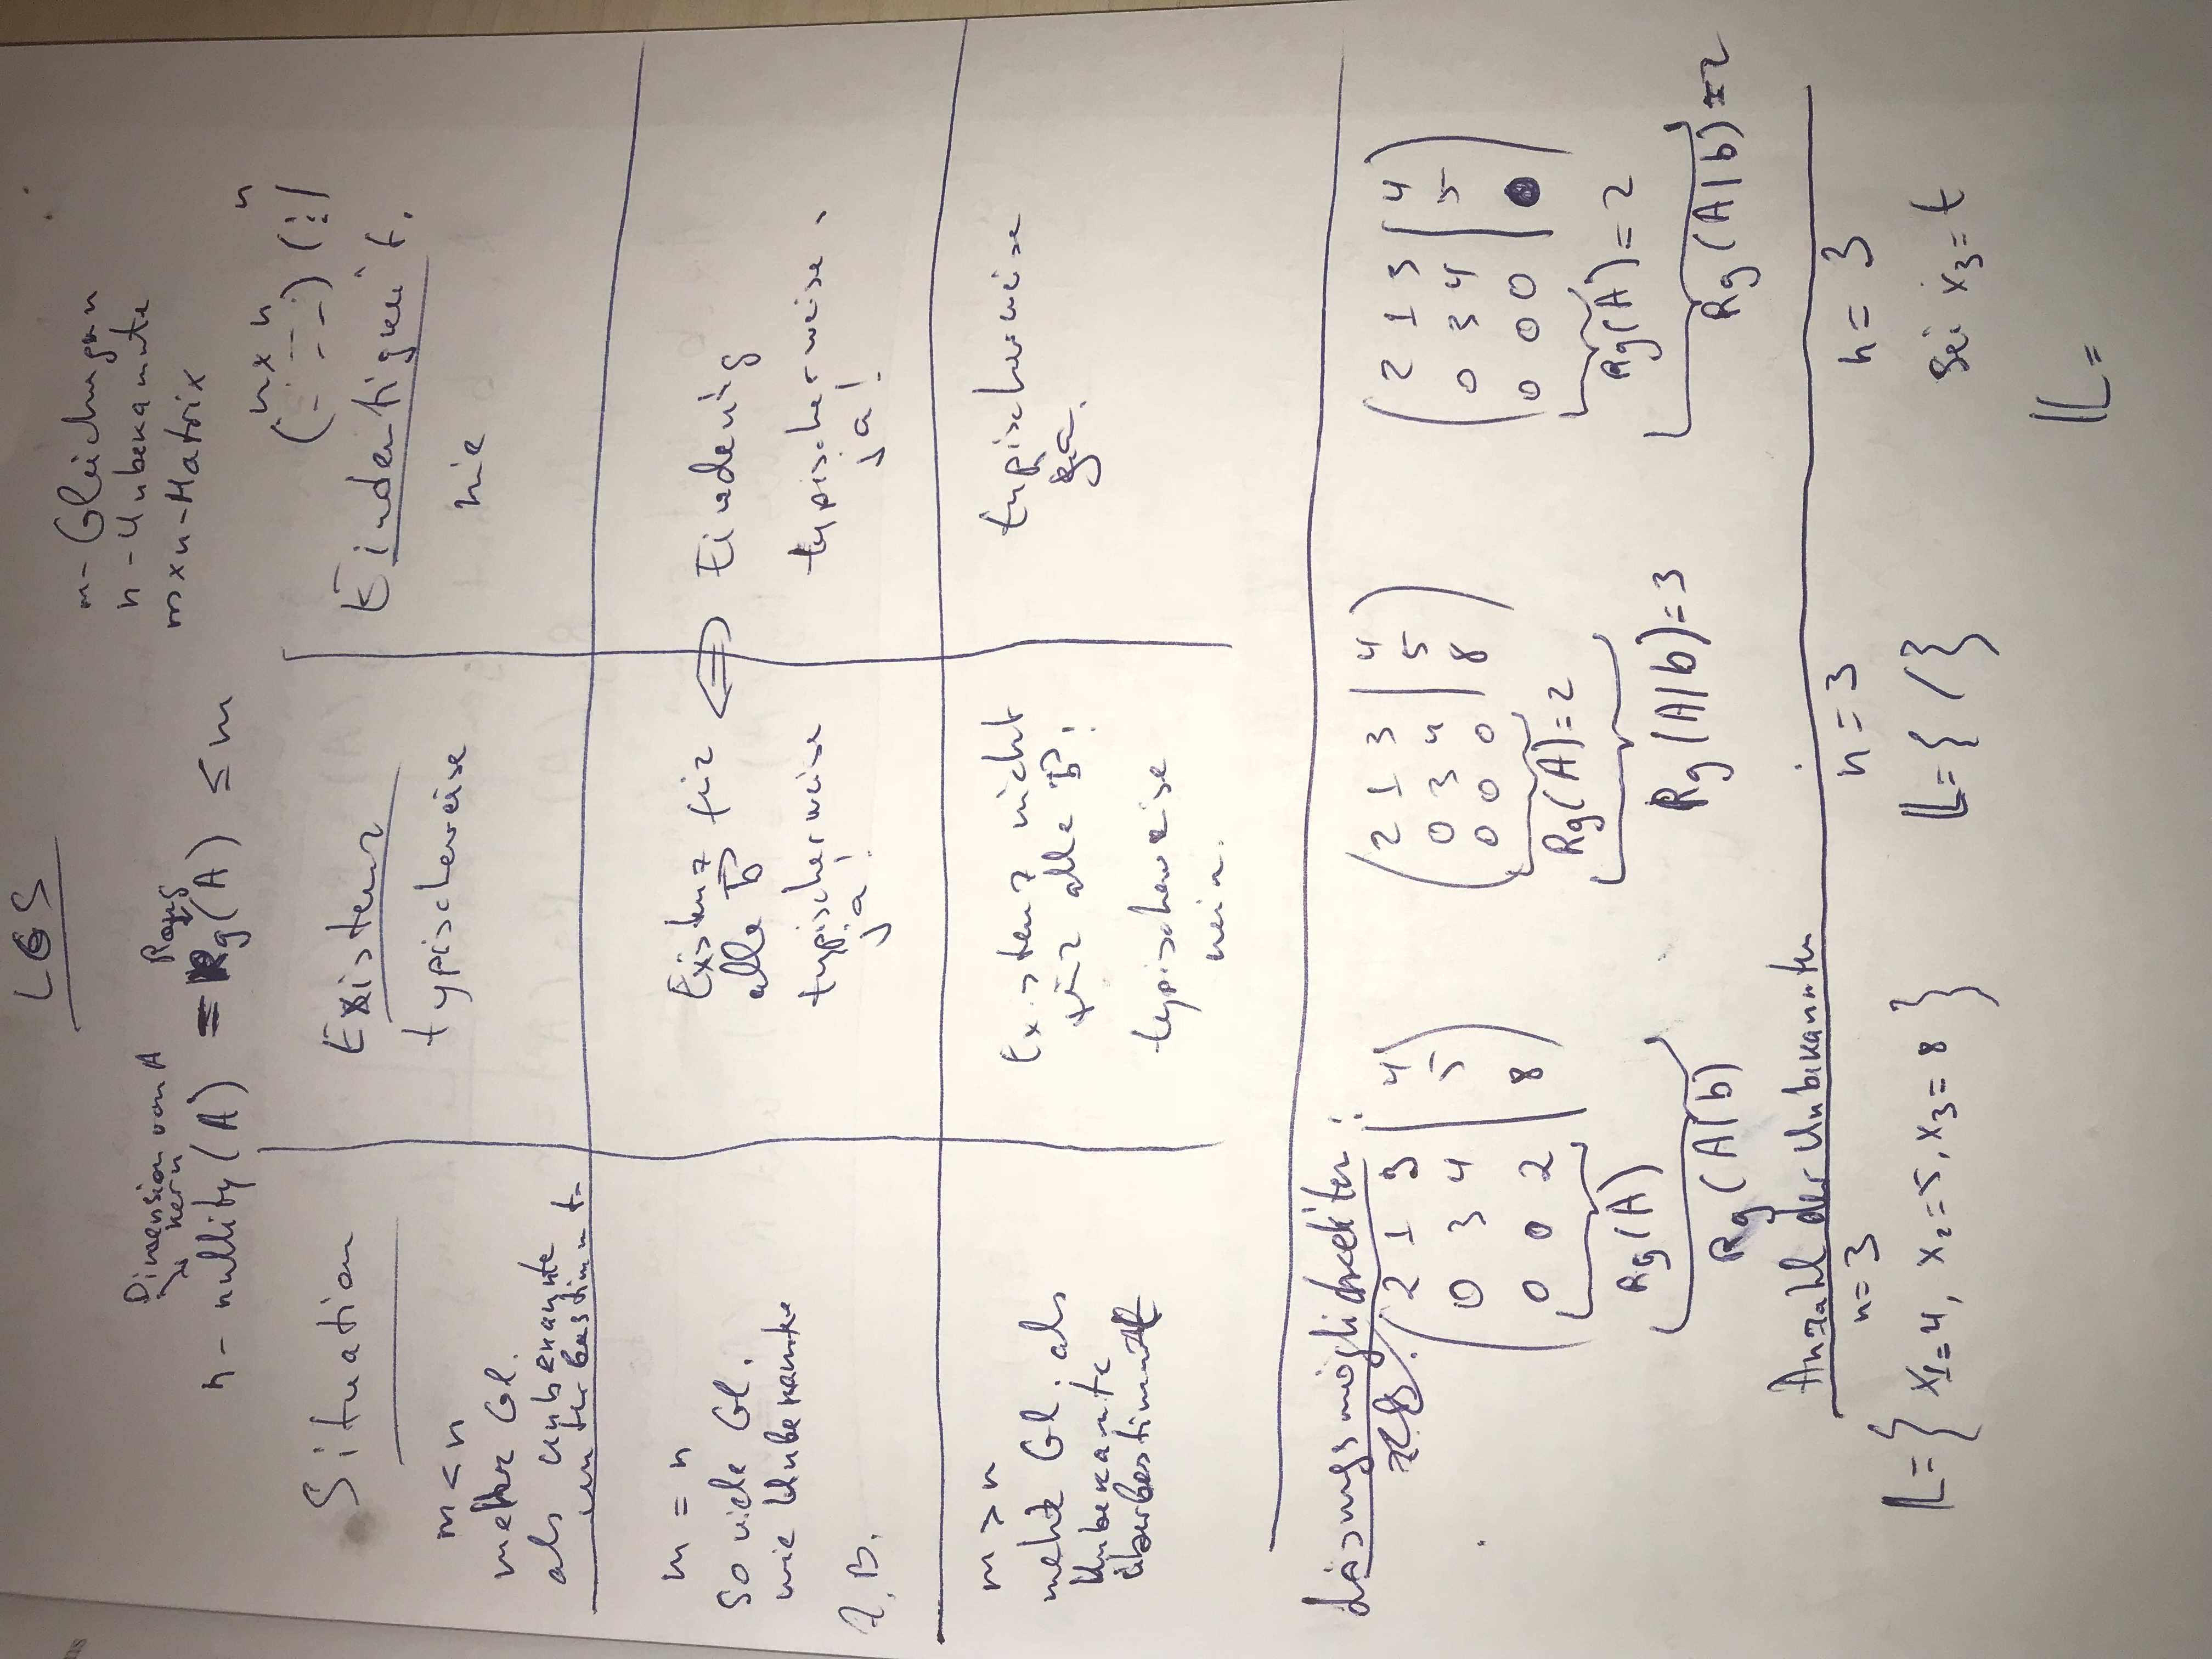 LGS
m - Gleichungen
n - Unbekannte
m×n-Matrix
Dimension von A
kern
Rang
n - nullity(A) = Rg(A) ≤ m
n × n
n
Situation
Existenz
Eindeutigkeit.
m < n
mehr Gl.
als Unbekannte
unterbestimmt
typischerweise
nie
m = n
so viele Gl.
wie Unbekannte
z.B.
Existenz für
alle b⃗
typischerweise
ja!
⟺
Eindeutig
typischerweise
ja!
m > n
mehr Gl. als
Unbekannte
überbestimmt
Existenz nicht
für alle b⃗!
typischerweise
nein.
typischerweise
ja.
Lösungsmöglichkeiten:
z.B.
( 2 1 3 | 4 )
( 0 3 4 | 5 )
( 0 0 2 | 8 )
Rg(A)
Rg(A|b)
( 2 1 3 | 4 )
( 0 3 4 | 5 )
( 0 0 0 | 8 )
Rg(A)=2
Rg(A|b)=3
( 2 1 3 | 4 )
( 0 3 4 | 5 )
( 0 0 0 | 0 )
Rg(A)=2
Rg(A|b)=2
Anzahl der Unbekannten
n=3
n=3
n=3
𝕃={ x₁=4, x₂=5, x₃=8 }
𝕃={ / }
Sei x₃=t
𝕃=